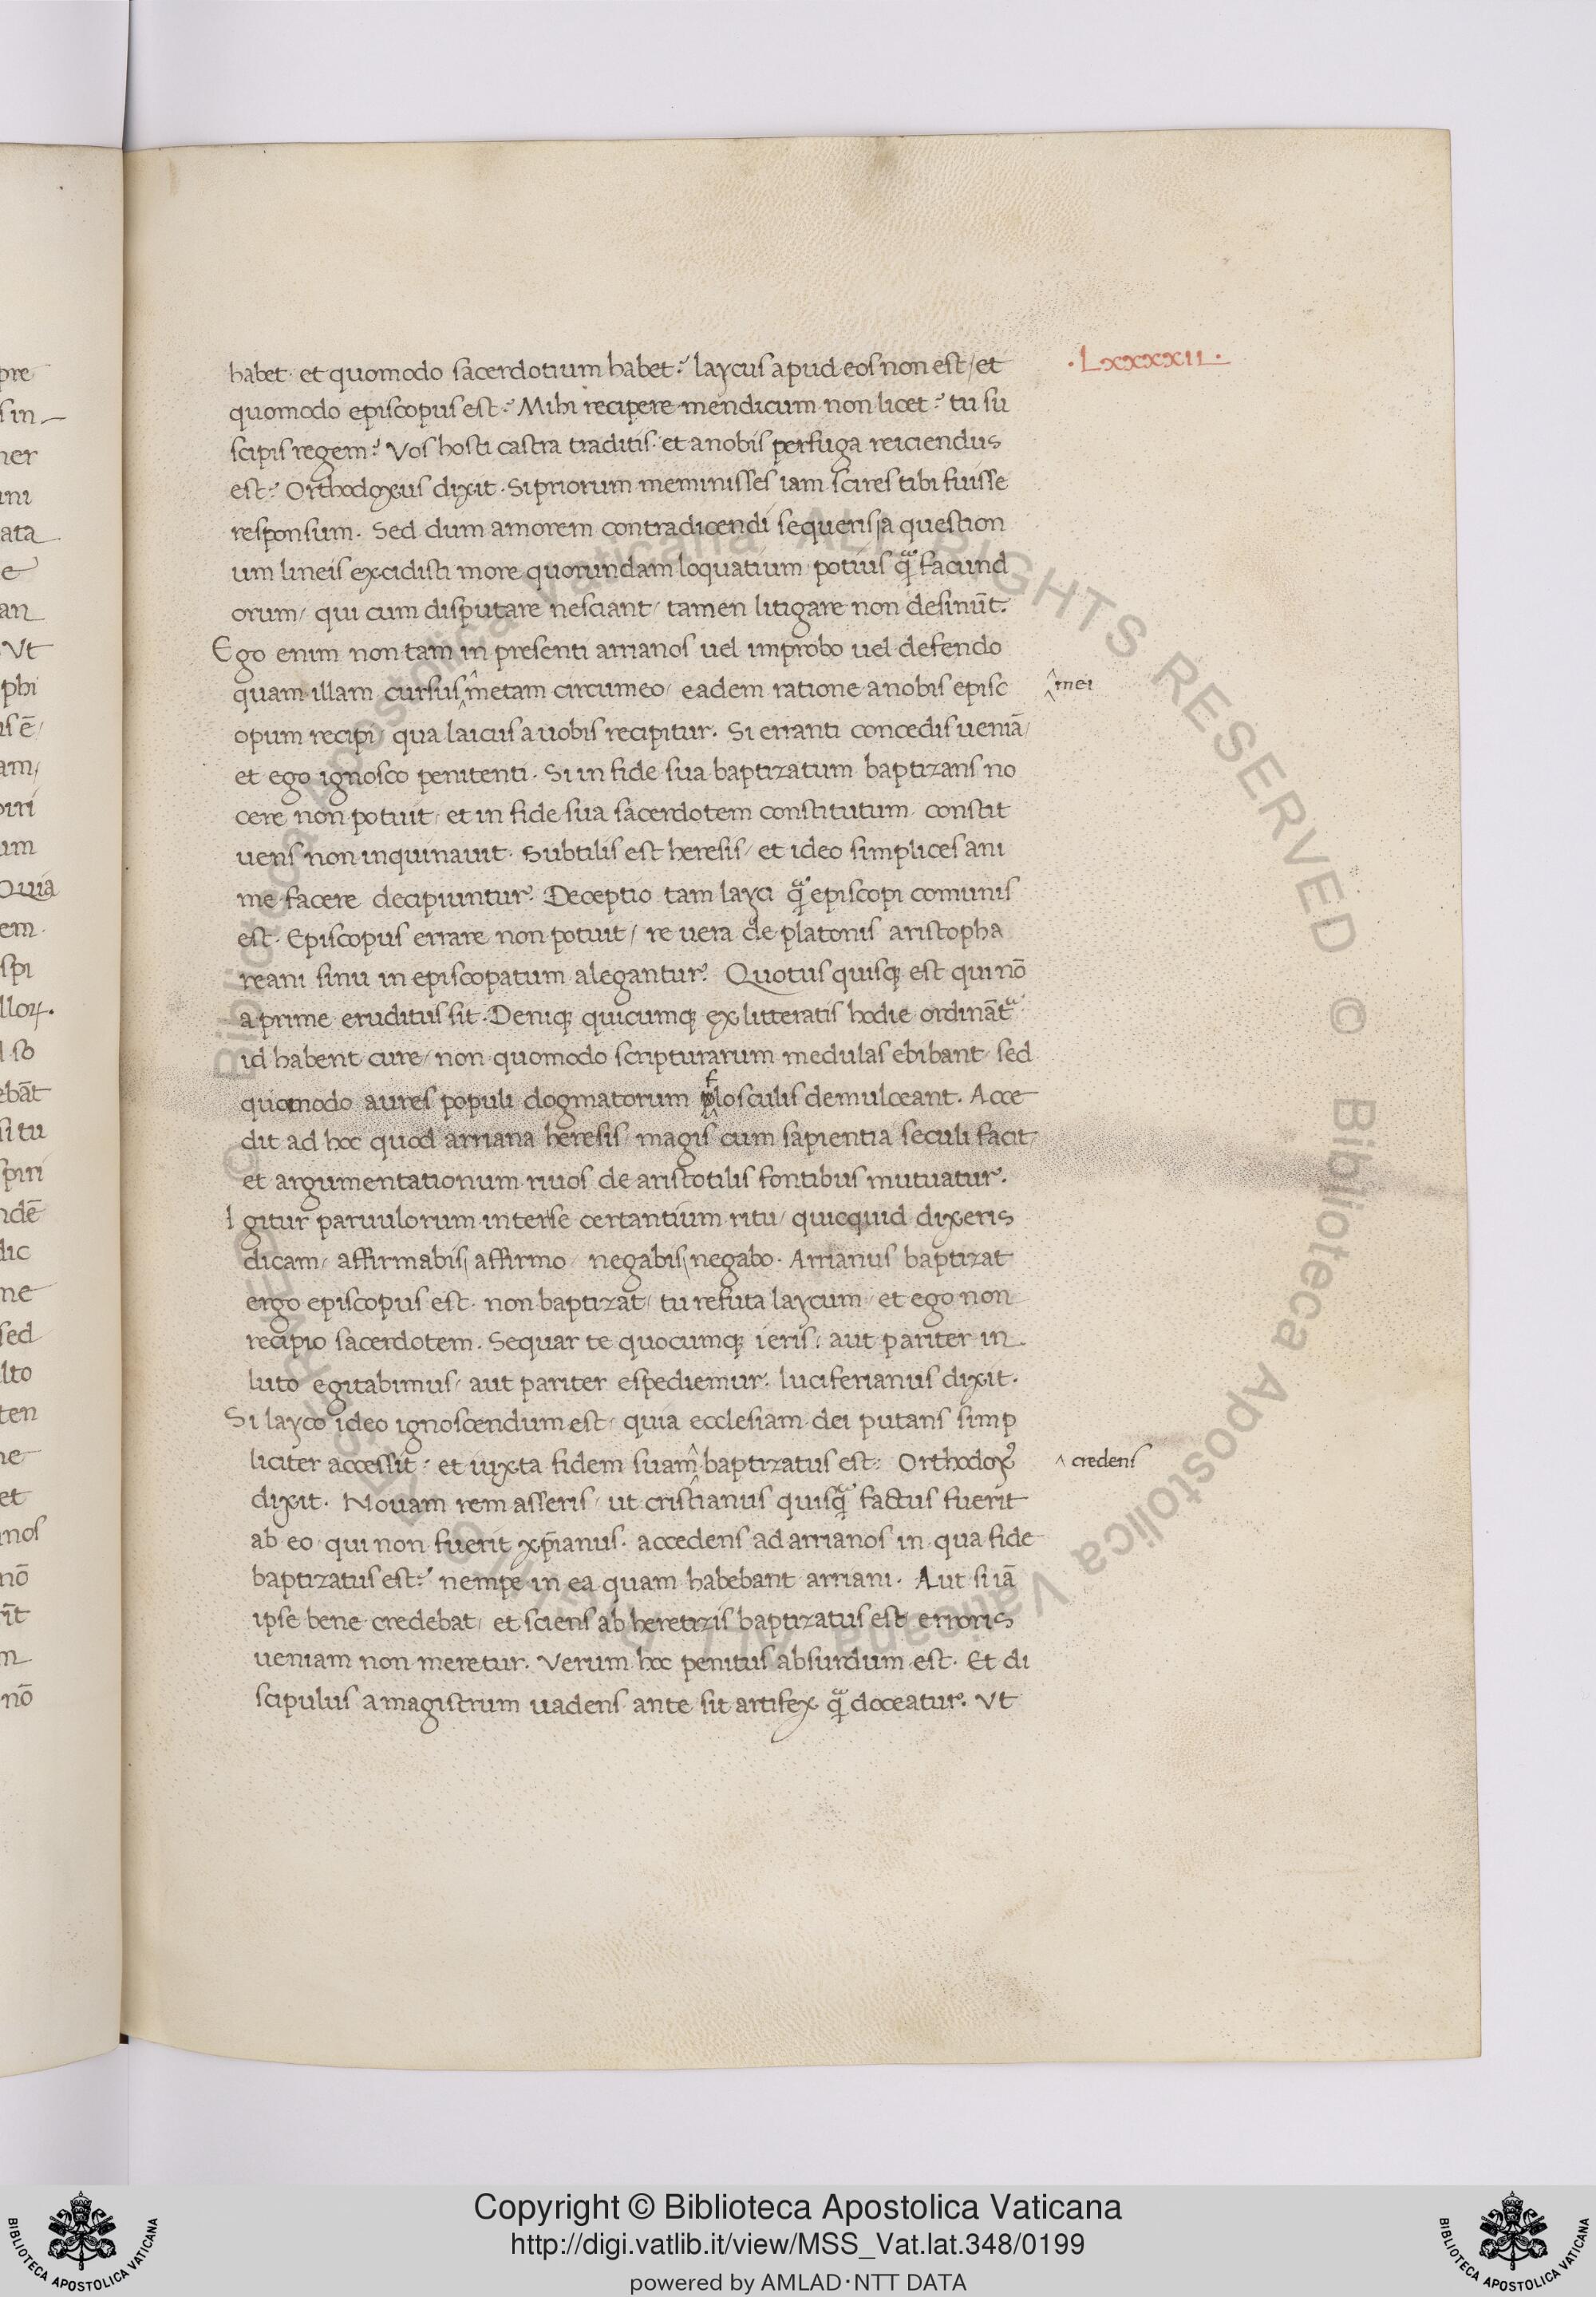 .Lxxxxii.
habet. et quomodo sacerdotium habet? laycus apud eos non est/ et
quomodo episcopus est? Mihi recipere mendicum non licet? tu su
scipis regem? Vos hosti castra traditis. et a nobis perfuga reiciendus
est? Orthodoxus dixit. Si priorum meminisses iam scires tibi fuisse
responsum. Sed dum amorem contradicendi sequeris/ a question
um lineis excidisti more quorundam loquatium/ potius qua̅ facund
orum/ qui cum disputare nesciant/ tamen litigare non desinūt.
Ego enim non tam in presenti arrianos uel improbo uel defendo
quam illam cursus ^ metam circumeo/ eadem ratione a nobis episc
^ mei
opum recipi/ qua laicus a uobis recipitur. Si erranti concedis ueniā/
et ego ignosco penitenti. Si in fide sua baptizatum baptizans no
cere non potuit/ et in fide sua sacerdotem constitutum constit
uens non inquinauit. Subtilis est heresis/ et ideo simplices ani
me facere decipiuntur. Deceptio tam layci qua̅ episcopi comunis
est. Episcopus errare non potuit/ re uera de platonis aristopha
reani sinu in episcopatum alegantur. Quotus quisq; est qui nō
a prime eruditus sit. Deniq; quicumq; ex litteratis hodie ordinānt
id habent cure/ non quomodo scripturarum medulas ebibant/ sed
quomodo aures populi dogmatorum flosculis demulceant. Acce
dit ad hoc quod arriana heresis/ magis cum sapientia seculi facit/
et argumentationum riuos de aristotilis fontibus mutuatur.
Igitur paruulorum inter se certantium ritu/ quicquid dixeris
dicam/ affirmabis/ affirmo/ negabis/ negabo. Arrianus baptizat
ergo episcopus est. non baptizat/ tu refuta laycum/ et ego non
recipio sacerdotem. Sequar te quocumq; ieris/ aut pariter in
luto egitabimus/ aut pariter espediemur. luciferianus dixit.
Si layco ideo ignoscendum est/ quia ecclesiam dei putans simp
liciter accessit? et iuxta fidem suam ^ baptizatus est? Orthodox9
^ credens
dixit. Nouam rem asseris/ ut cristianus quisqua̅ factus fuerit
ab eo qui non fuerit xp̄ianus. accedens ad arrianos in qua fide
baptizatus est? nempe in ea quam habebant arriani. Aut si iā
ipse bene credebat/ et sciens ab heretizis baptizatus est/ erroris
ueniam non meretur. Verum hoc penitus absurdum est. Et di
scipulus a magistrum uadens ante sit artifex qua̅ doceatur. Vt
Copyright © Biblioteca Apostolica Vaticana
http://digi.vatlib.it/view/MSS_Vat.lat.348/0199
powered by AMLAD·NTT DATA